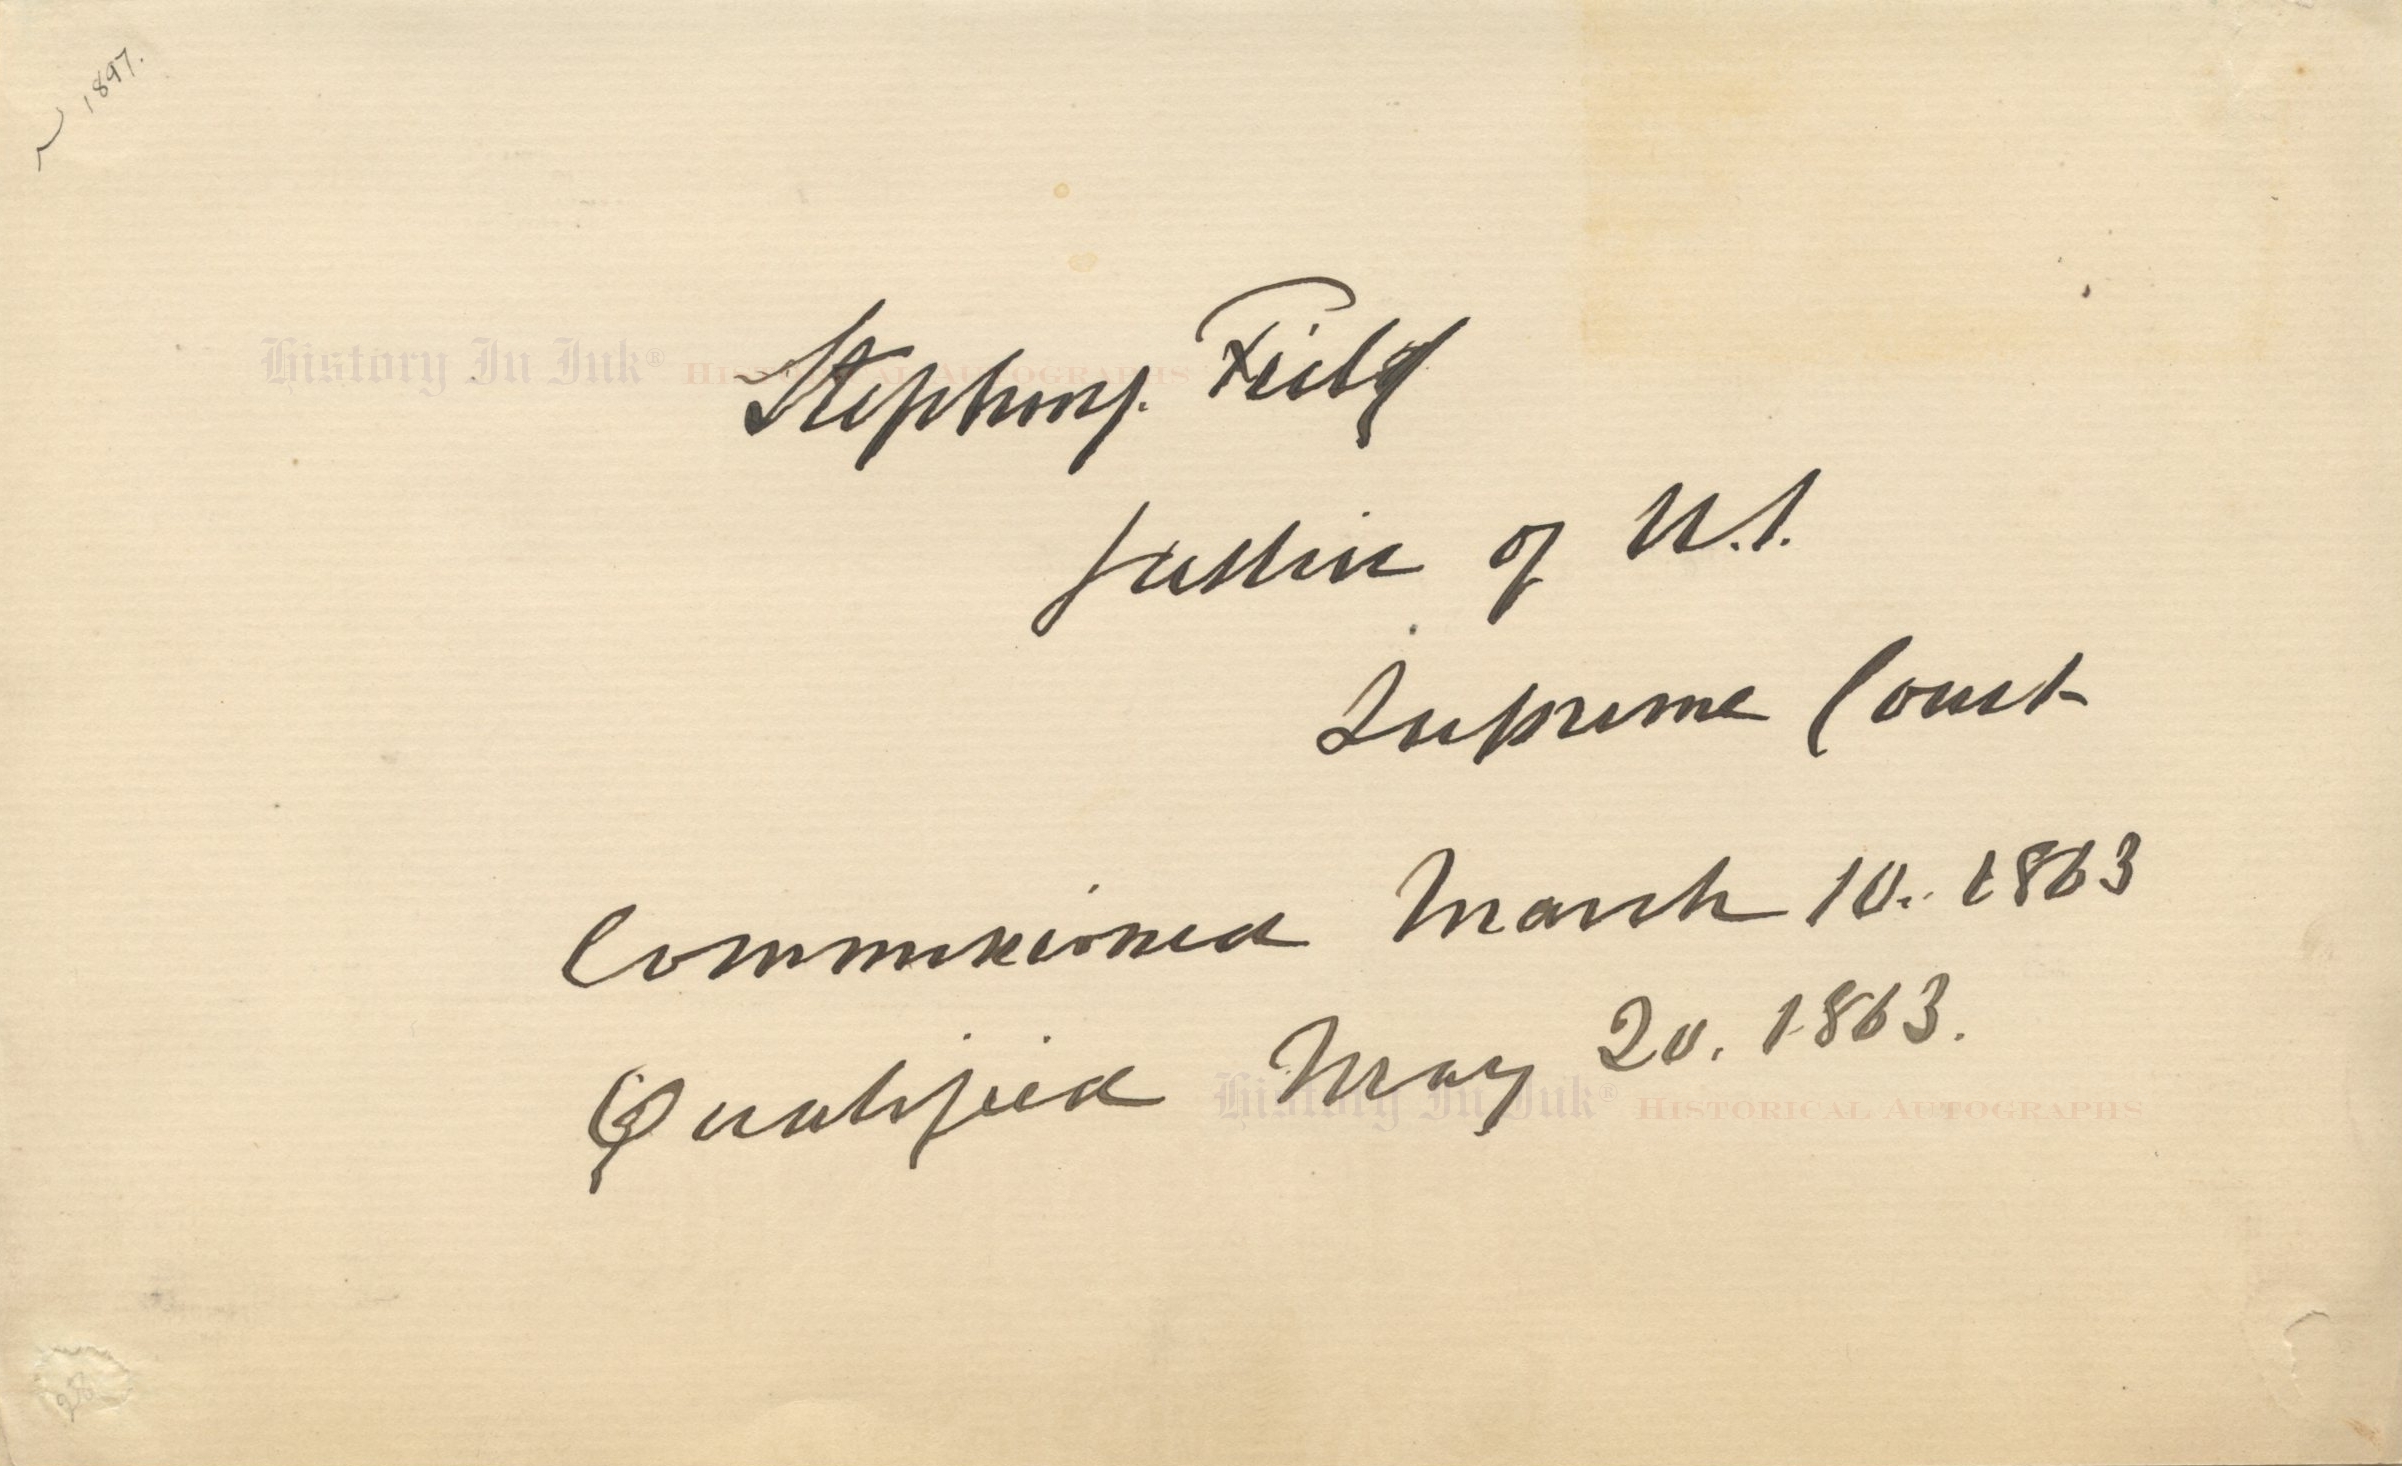 1897.
History In Ink® Historical Autographs
Stephen J. Field
Justice of U.S.
Supreme Court
Commissioned March 10. 1863
Qualified May 20. 1863.
History In Ink® Historical Autographs